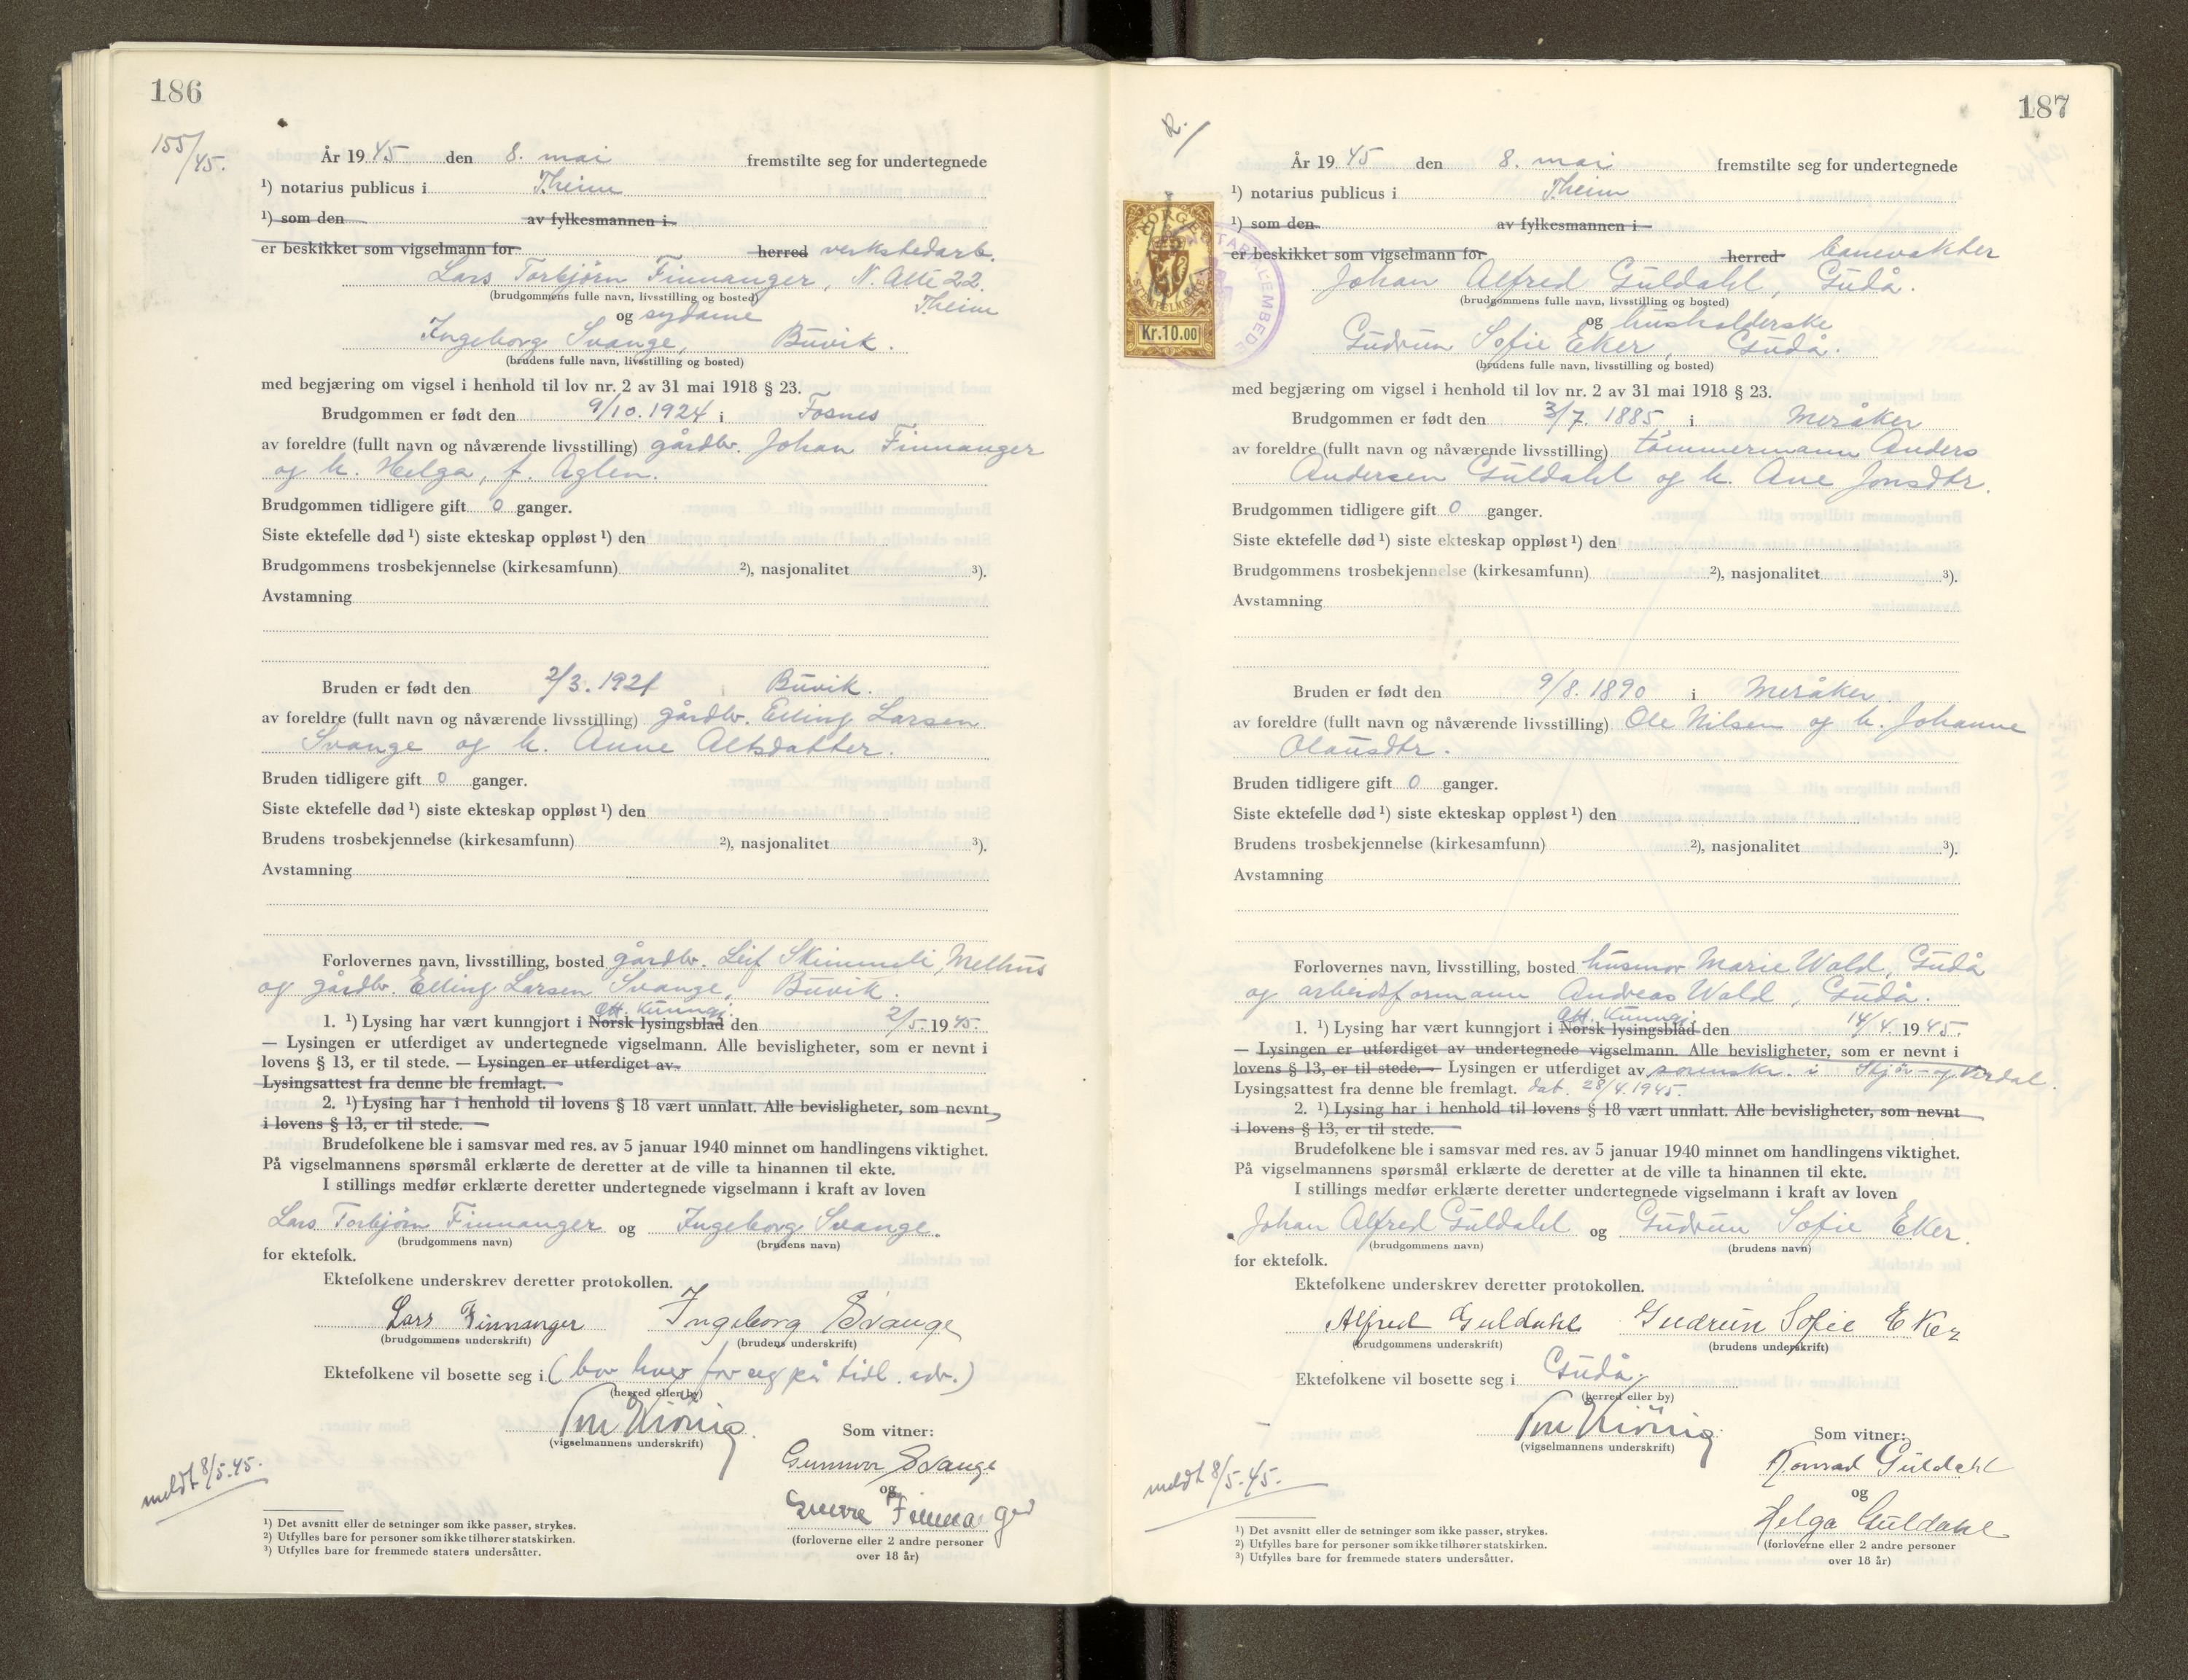 186
155/45.
År 1945 den 8. mai fremstilte seg for undertegnede
¹) notarius publicus i Theim
¹) som den av fylkesmannen i
er beskikket som vigselmann for herred verkstedarb.
Lars Torbjörn Finnanger, N. Allé 22.
(brudgommens fulle navn, livsstilling og bosted)
Theim
og sydame
Ingeborg Svange, Buvik.
(brudens fulle navn, livsstilling og bosted)
med begjæring om vigsel i henhold til lov nr. 2 av 31 mai 1918 § 23.
Brudgommen er født den 9/10. 1924 i Fosnes
av foreldre (fullt navn og nåværende livsstilling) gårdbr. Johan Finnanger
og h. Helga, f. Aglen.
Brudgommen tidligere gift 0 ganger.
Siste ektefelle død ¹) siste ekteskap oppløst ¹) den
Brudgommens trosbekjennelse (kirkesamfunn) ²), nasjonalitet ³).
Avstamning
Bruden er født den 2/3. 1921 Buvik.
av foreldre (fullt navn og nåværende livsstilling) gårdbr. Elling Larsen
Svange og h. Anne Altsdatter.
Bruden tidligere gift 0 ganger.
Siste ektefelle død ¹) siste ekteskap oppløst ¹) den
Brudens trosbekjennelse (kirkesamfunn) ²), nasjonalitet ³).
Avstamning
Forlovernes navn, livsstilling, bosted gårdbr. Leif Skimmeli, Melhus
og gårdbr. Elling Larsen Svange, Buvik.
Off. Kunngj.
1. ¹) Lysing har vært kunngjort i Norsk lysingsblad den 2/5. 1945.
— Lysingen er utferdiget av undertegnede vigselmann. Alle bevisligheter, som er nevnt i
lovens § 13, er til stede. — Lysingen er utferdiget av
Lysingsattest fra denne ble fremlagt. —
2. ¹) Lysing har i henhold til lovens § 18 vært unnlatt. Alle bevisligheter, som nevnt
i lovens § 13, er til stede. —
Brudefolkene ble i samsvar med res. av 5 januar 1940 minnet om handlingens viktighet.
På vigselmannens spørsmål erklærte de deretter at de ville ta hinannen til ekte.
I stillings medfør erklærte deretter undertegnede vigselmann i kraft av loven
Lars Torbjörn Finnanger og Ingeborg Svange.
(brudgommens navn) (brudens navn)
for ektefolk.
Ektefolkene underskrev deretter protokollen.
Lars Finnanger Ingeborg Svange
(brudgommens underskrift) (brudens underskrift)
Ektefolkene vil bosette seg i (bor hver for seg på tidl. adr.)
(herred eller by)
(vigselmannens underskrift)
Som vitner:
Gunnvor Svange
og
Sverre Finnanger
(forloverne eller 2 andre personer
over 18 år)
meldt 8/5.45.
¹) Det avsnitt eller de setninger som ikke passer, strykes.
²) Utfylles bare for personer som ikke tilhører statskirken.
³) Utfylles bare for fremmede staters undersåtter.
187
R.
NORGE
STEMPELMERKE
Kr.10.00
År 1945 den 8. mai fremstilte seg for undertegnede
¹) notarius publicus i Theim
¹) som den av fylkesmannen i
er beskikket som vigselmann for herred banevokter
Johan Alfred Guldahl, Gudå.
(brudgommens fulle navn, livsstilling og bosted)
og husholderske
Gudrun Sofie Eker, Gudå.
(brudens fulle navn, livsstilling og bosted)
med begjæring om vigsel i henhold til lov nr. 2 av 31 mai 1918 § 23.
Brudgommen er født den 3/7. 1885 i Meråker
av foreldre (fullt navn og nåværende livsstilling) tömmermann Anders
Andersen Guldahl og h. Ane Jonsdtr.
Brudgommen tidligere gift 0 ganger.
Siste ektefelle død ¹) siste ekteskap oppløst ¹) den
Brudgommens trosbekjennelse (kirkesamfunn) ²), nasjonalitet ³).
Avstamning
Bruden er født den 9/8. 1890 i Meråker
av foreldre (fullt navn og nåværende livsstilling) Ole Nilsen og h. Johanne
Olausdtr.
Bruden tidligere gift 0 ganger.
Siste ektefelle død ¹) siste ekteskap oppløst ¹) den
Brudens trosbekjennelse (kirkesamfunn) ²), nasjonalitet ³).
Avstamning
Forlovernes navn, livsstilling, bosted husmor Marie Wold, Gudå
og arbeidsformann Andreas Wold, Gudå.
Off. Kunngj.
1. ¹) Lysing har vært kunngjort i Norsk lysingsblad den 14/4. 1945.
— Lysingen er utferdiget av undertegnede vigselmann. Alle bevisligheter, som er nevnt i
lovens § 13, er til stede. — Lysingen er utferdiget av sorenskr. i Stjör- og Verdal.
Lysingsattest fra denne ble fremlagt. dat. 28/4.1945.
2. ¹) Lysing har i henhold til lovens § 18 vært unnlatt. Alle bevisligheter, som nevnt
i lovens § 13, er til stede. —
Brudefolkene ble i samsvar med res. av 5 januar 1940 minnet om handlingens viktighet.
På vigselmannens spørsmål erklærte de deretter at de ville ta hinannen til ekte.
I stillings medfør erklærte deretter undertegnede vigselmann i kraft av loven
Johan Alfred Guldahl og Gudrun Sofie Eker.
(brudgommens navn) (brudens navn)
for ektefolk.
Ektefolkene underskrev deretter protokollen.
Alfred Guldahl Gudrun Sofie Eker
(brudgommens underskrift) (brudens underskrift)
Ektefolkene vil bosette seg i Gudå.
(herred eller by)
(vigselmannens underskrift)
Som vitner:
Konrad Guldahl
og
Helga Guldahl
(forloverne eller 2 andre personer
over 18 år)
meldt 8/5.45.
¹) Det avsnitt eller de setninger som ikke passer, strykes.
²) Utfylles bare for personer som ikke tilhører statskirken.
³) Utfylles bare for fremmede staters undersåtter.